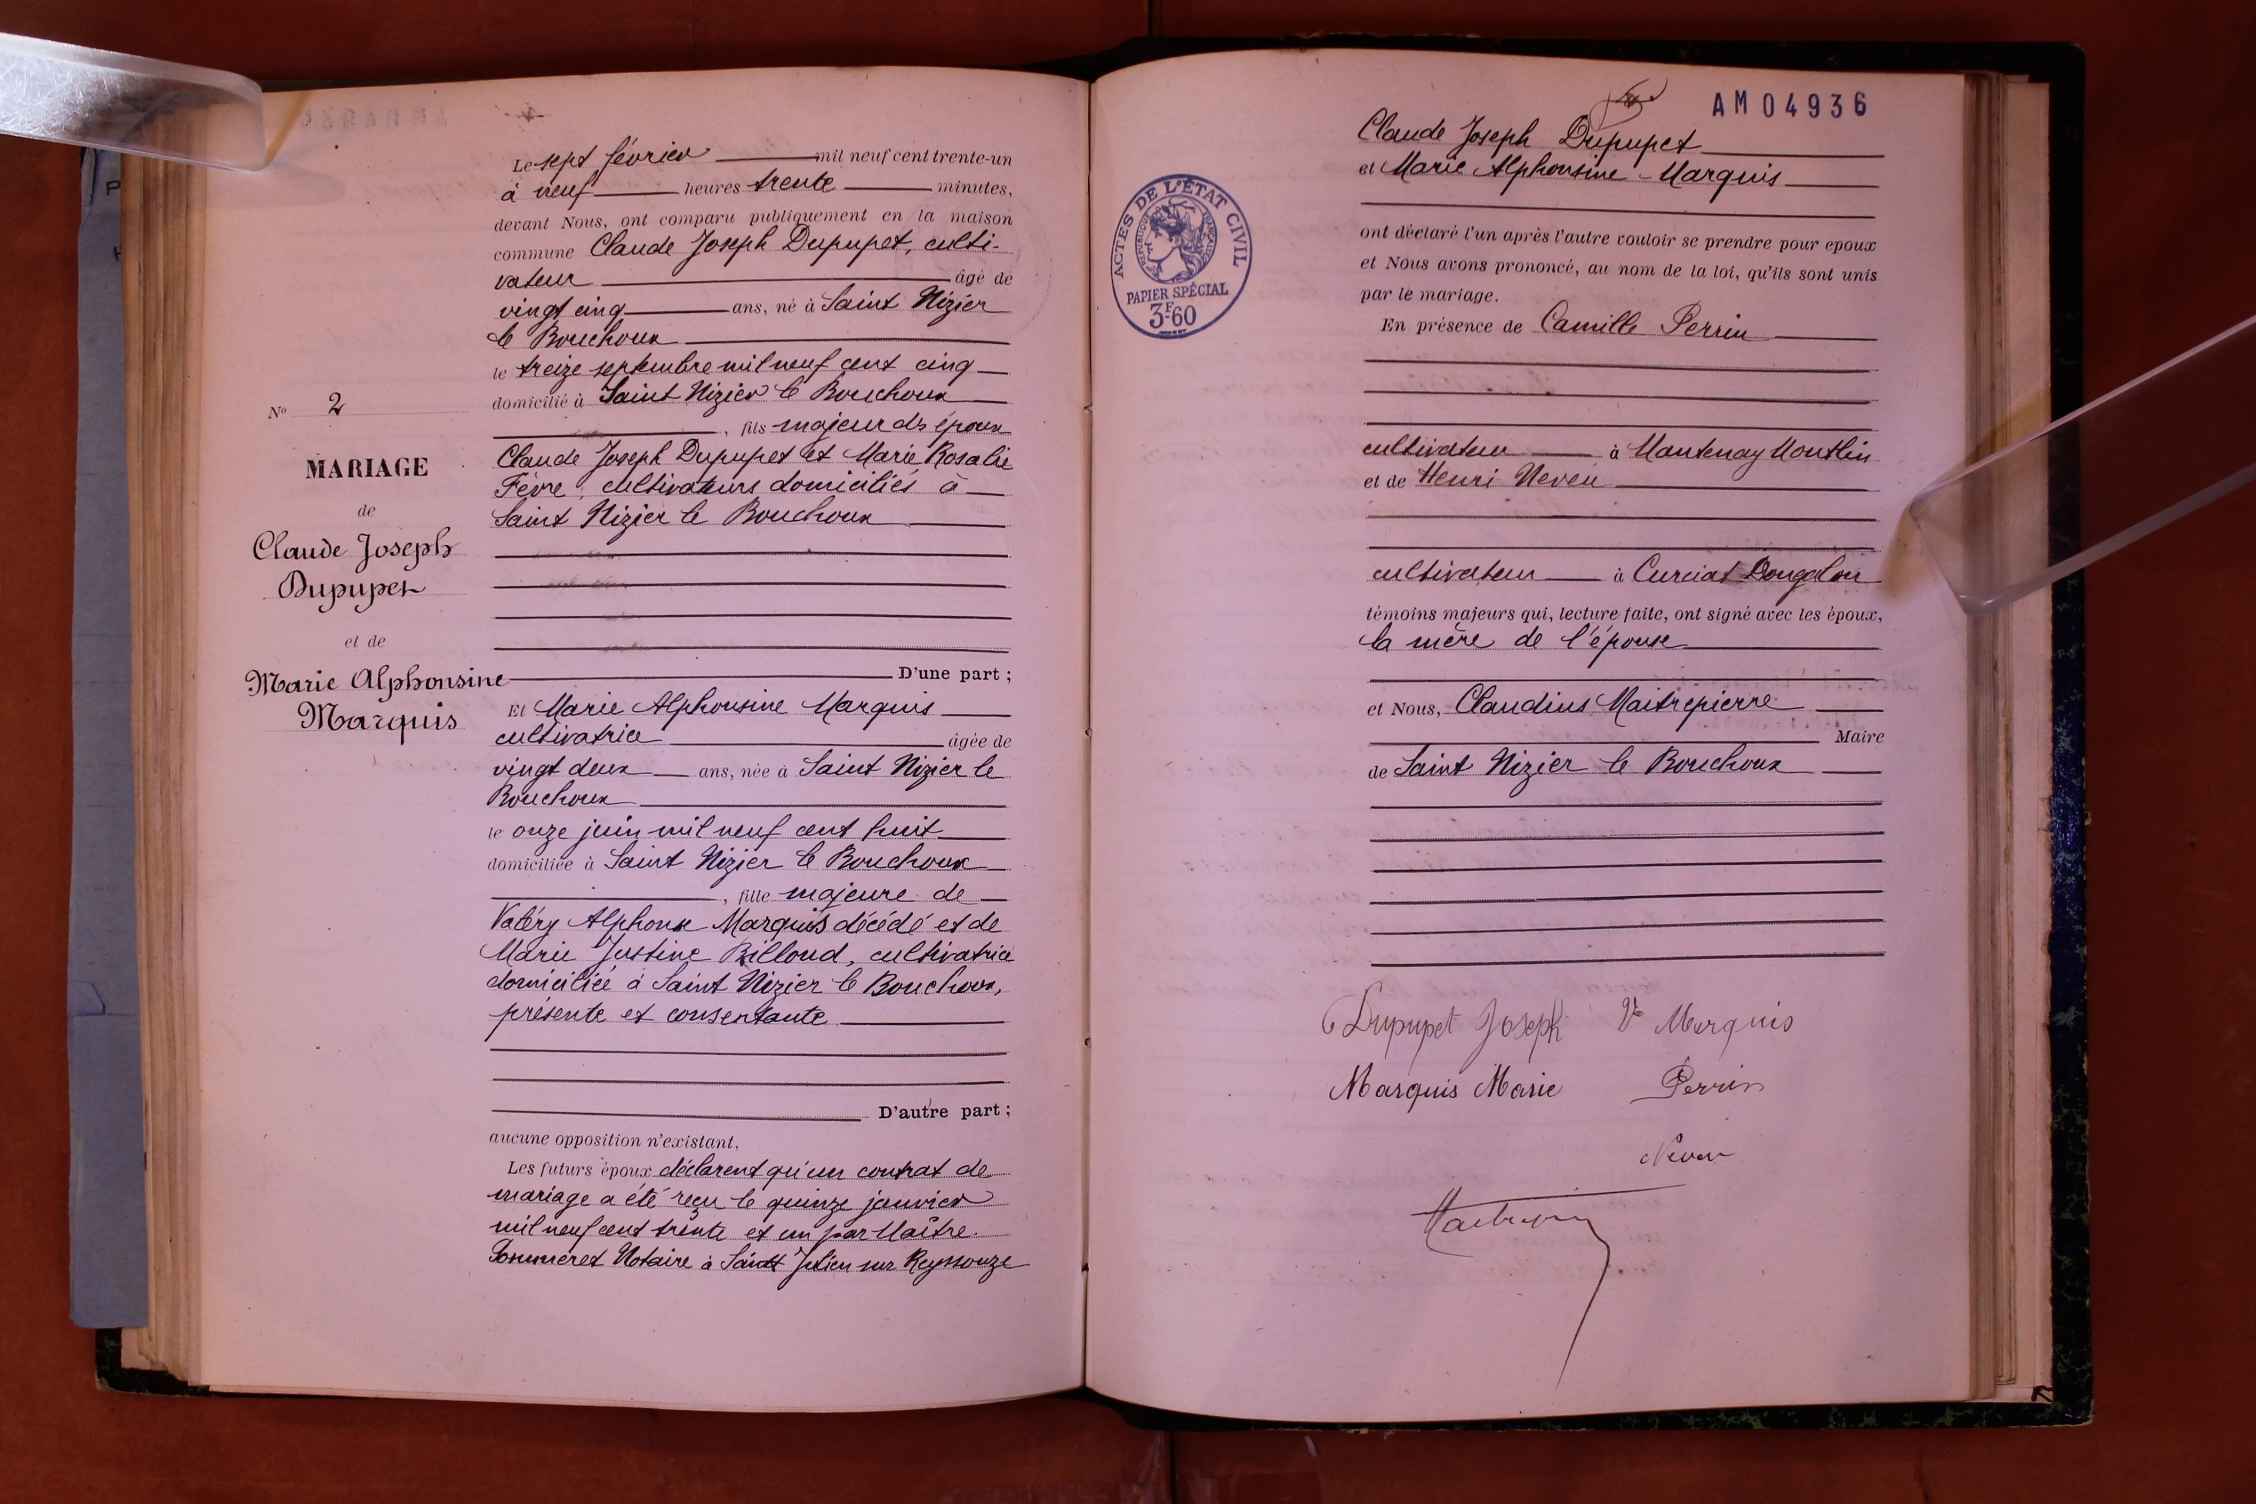 Le sept février mil neuf cent trente-un
à neuf heures trente minutes,
devant Nous, ont comparu publiquement en la maison
commune Claude Joseph Dupupet, culti-
vateur âgé de
vingt cinq ans, né à Saint Nizier
le Bouchoux
le treize septembre mil neuf cent cinq
domicilié à Saint Nizier le Bouchoux
, fils majeur des époux
Claude Joseph Dupupet et Marie Rosalie
Fèvre, cultivateurs domiciliés à
Saint Nizier le Bouchoux
No 2
MARIAGE
de
Claude Joseph
Dupupet
et de
Marie Alphonsine
Marquis
D'une part ;
Et Marie Alphonsine Marquis
cultivatrice âgée de
vingt deux ans, née à Saint Nizier le
Bouchoux
le onze juin mil neuf cent huit
domiciliée à Saint Nizier le Bouchoux
, fille majeure de
Valéry Alphonse Marquis décédé et de
Marie Justine Billoud, cultivatrice
domiciliée à Saint Nizier le Bouchoux,
présente et consentante
D'autre part ;
aucune opposition n'existant,
Les futurs époux déclarent qu'un contrat de
mariage a été reçu le quinze janvier
mil neuf cent trente et un par Maître
Notaire à Saint Julien sur Reyssouze
AM04936
Claude Joseph Dupupet
et Marie Alphonsine Marquis
ont déclaré l'un après l'autre vouloir se prendre pour époux
et Nous avons prononcé, au nom de la loi, qu'ils sont unis
par le mariage.
En présence de Camille Perrin
cultivateur à Mantenay Montlin
et de Henri Neveu
cultivateur à Curciat Dongalon
témoins majeurs qui, lecture faite, ont signé avec les époux,
la mère de l'épouse
et Nous, Claudius Maitrepierre
Maire
de Saint Nizier le Bouchoux
ACTES DE L'ÉTAT CIVIL
RÉPUBLIQUE FRANÇAISE
PAPIER SPÉCIAL
3F.60
Dupupet Joseph Ve Marquis
Marquis Marie Perrin
Neveu